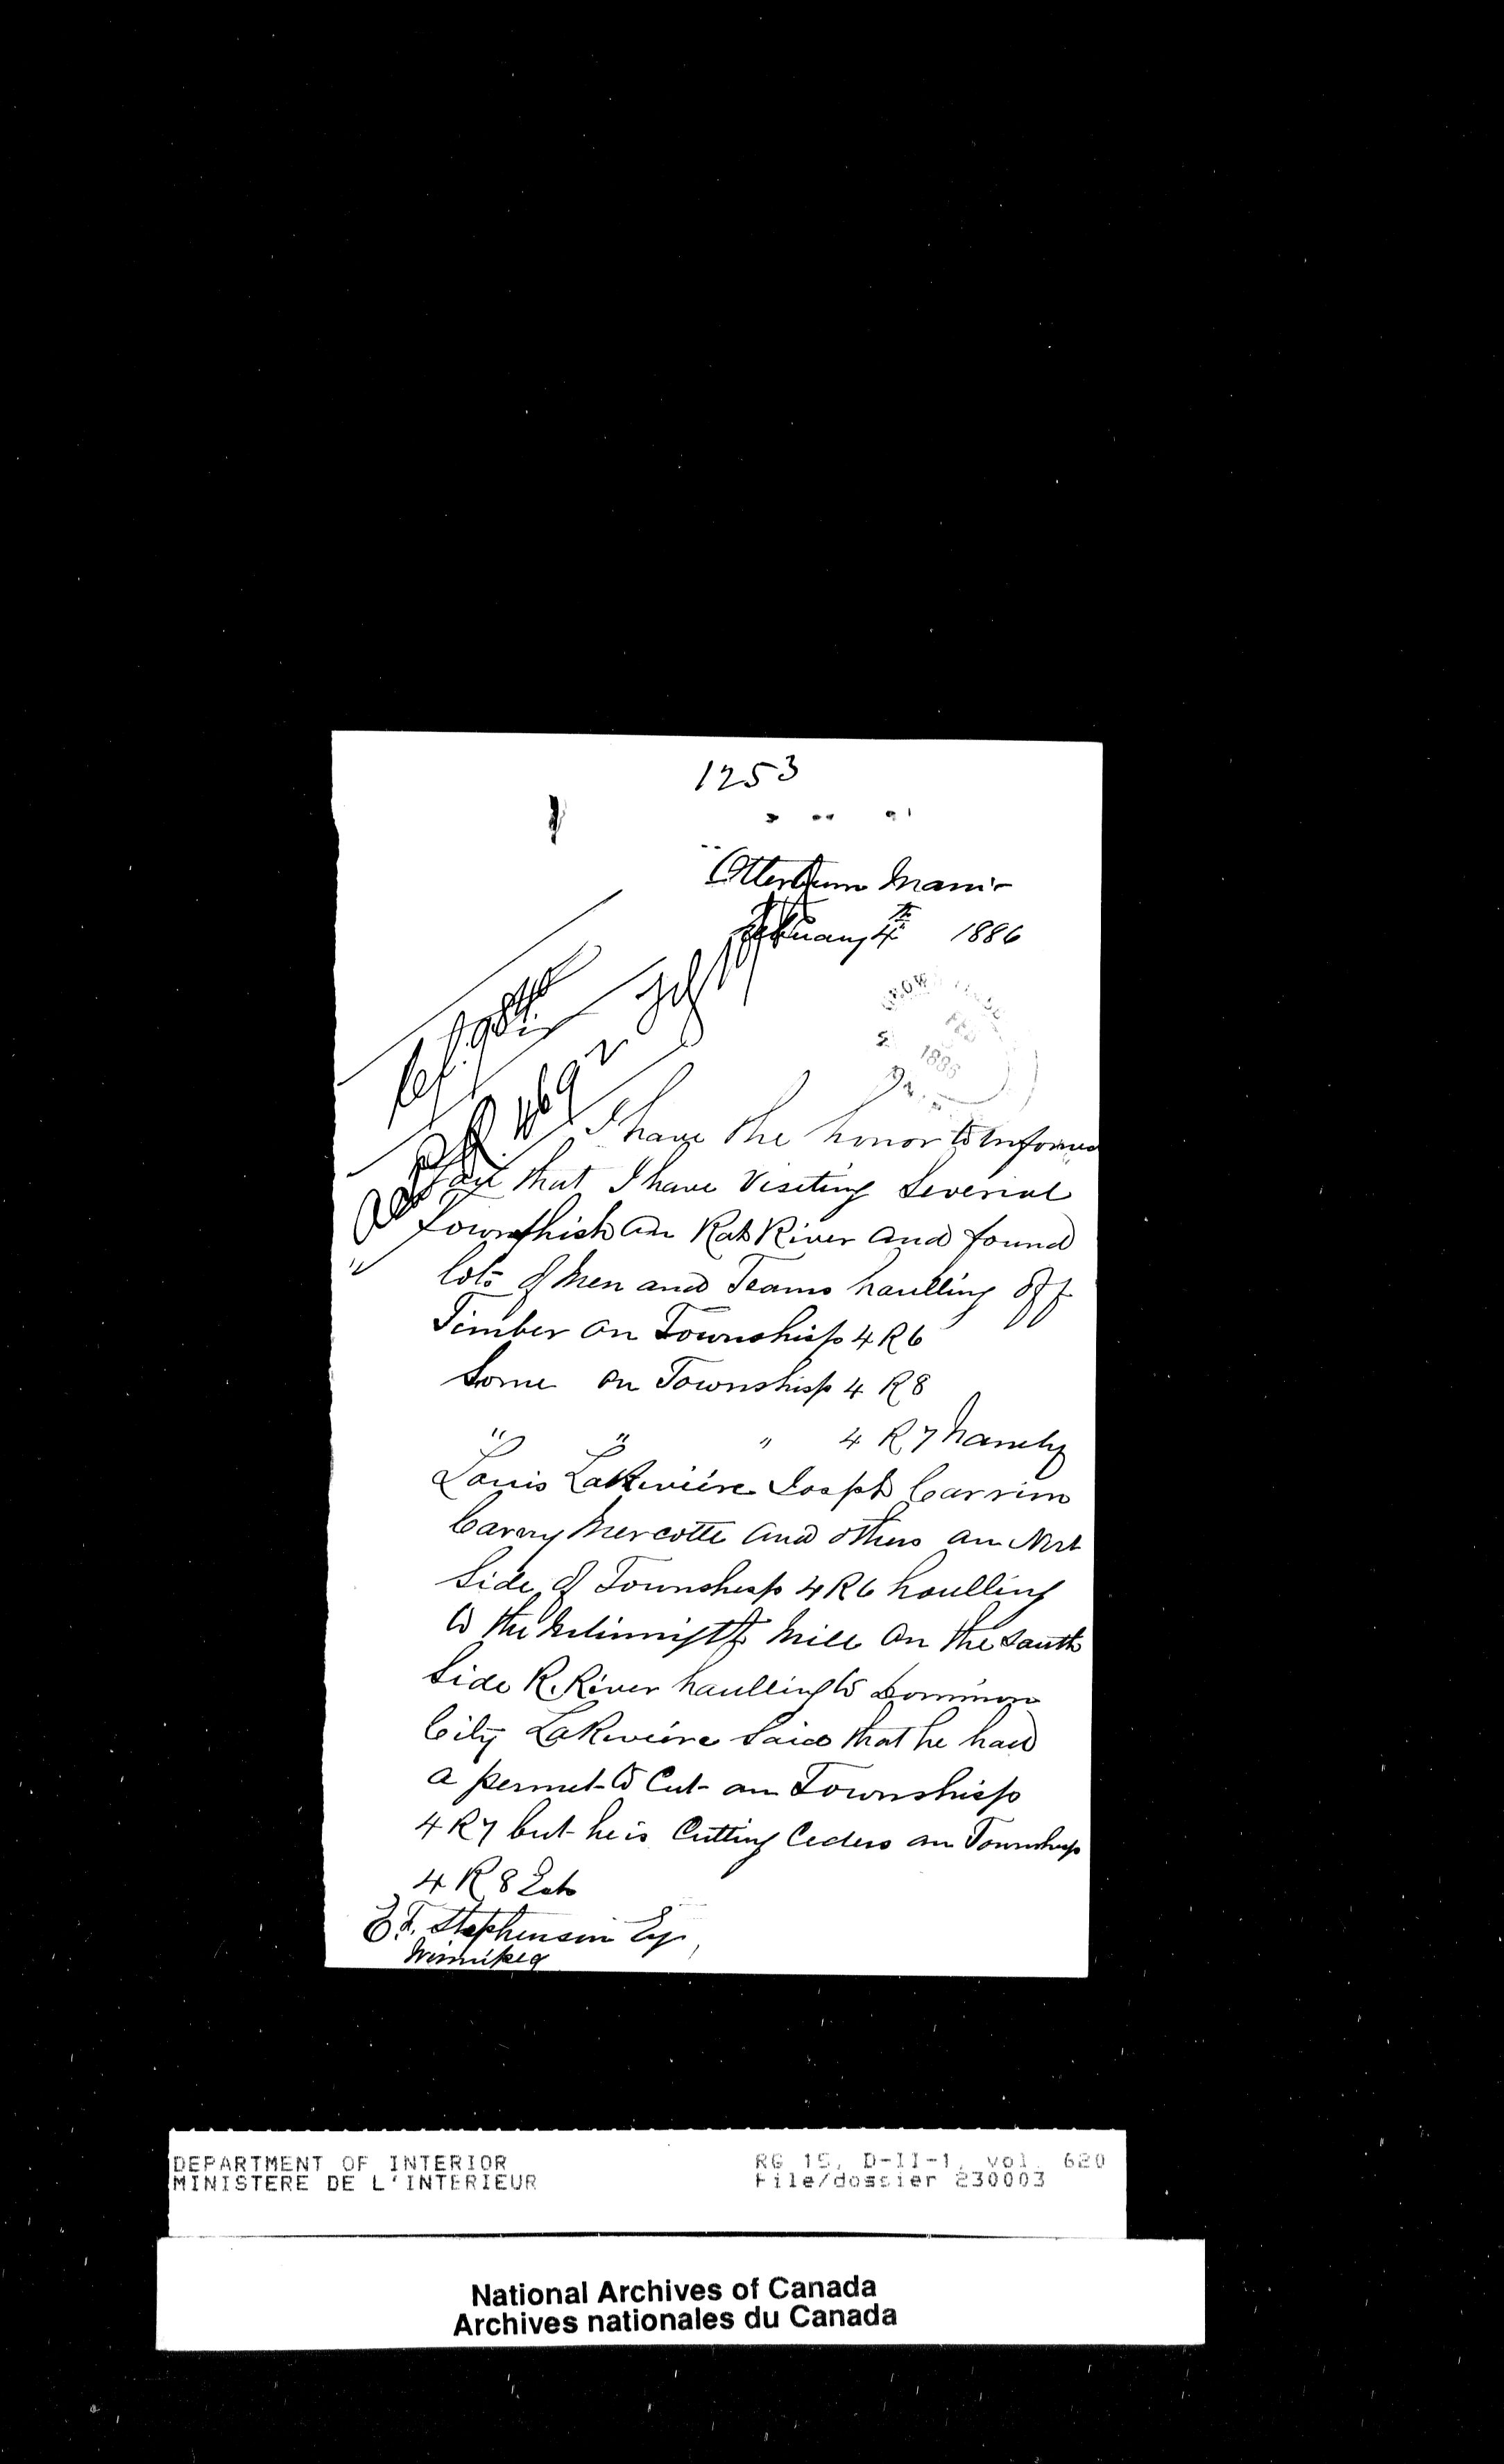 1253
Otterburn Mani-
February 4th 1886
CROWN
FEB
1886
I have the honor to Informed
you that I have Visiting Severial
Townshish an Rat River and found
lots of Men and Teams haulling off
Timber on Township 4 R 6
Some on Township 4 R 8
" " " 4 R 7 Namely
Louis Joseph
and others an
Side of Township 4 R 6 houlling
to the Mill On the South
Side R. River haulling to Dominion
City said that he had
a permit to Cut an Township
4 R 7 but he is Cutting Ceders an Township
4 R 8
E F. Stephenson Esq,
Winnipeg
DEPARTMENT OF INTERIOR RG 15, D-II-1, vol. 620
MINISTERE DE L'INTERIEUR File/dossier 230003
National Archives of Canada
Archives nationales du Canada